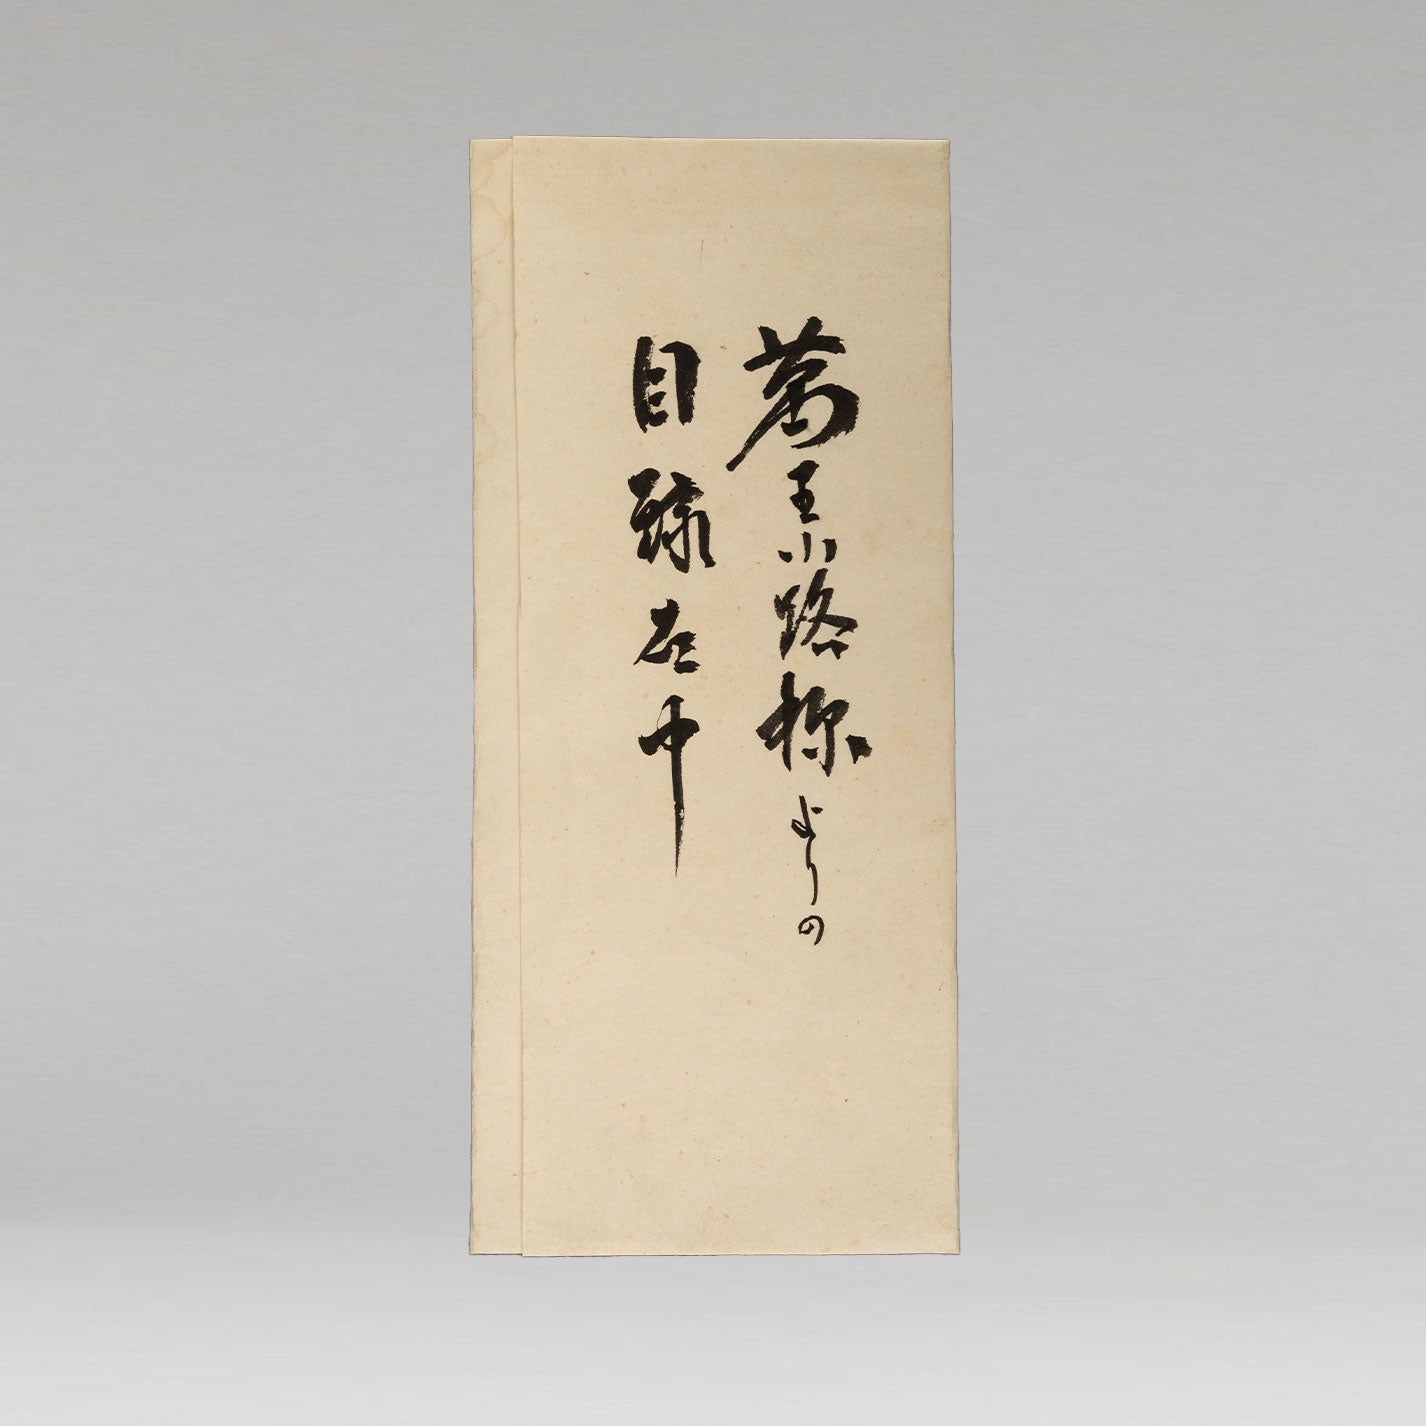 萬里小路様よりの
目録在中